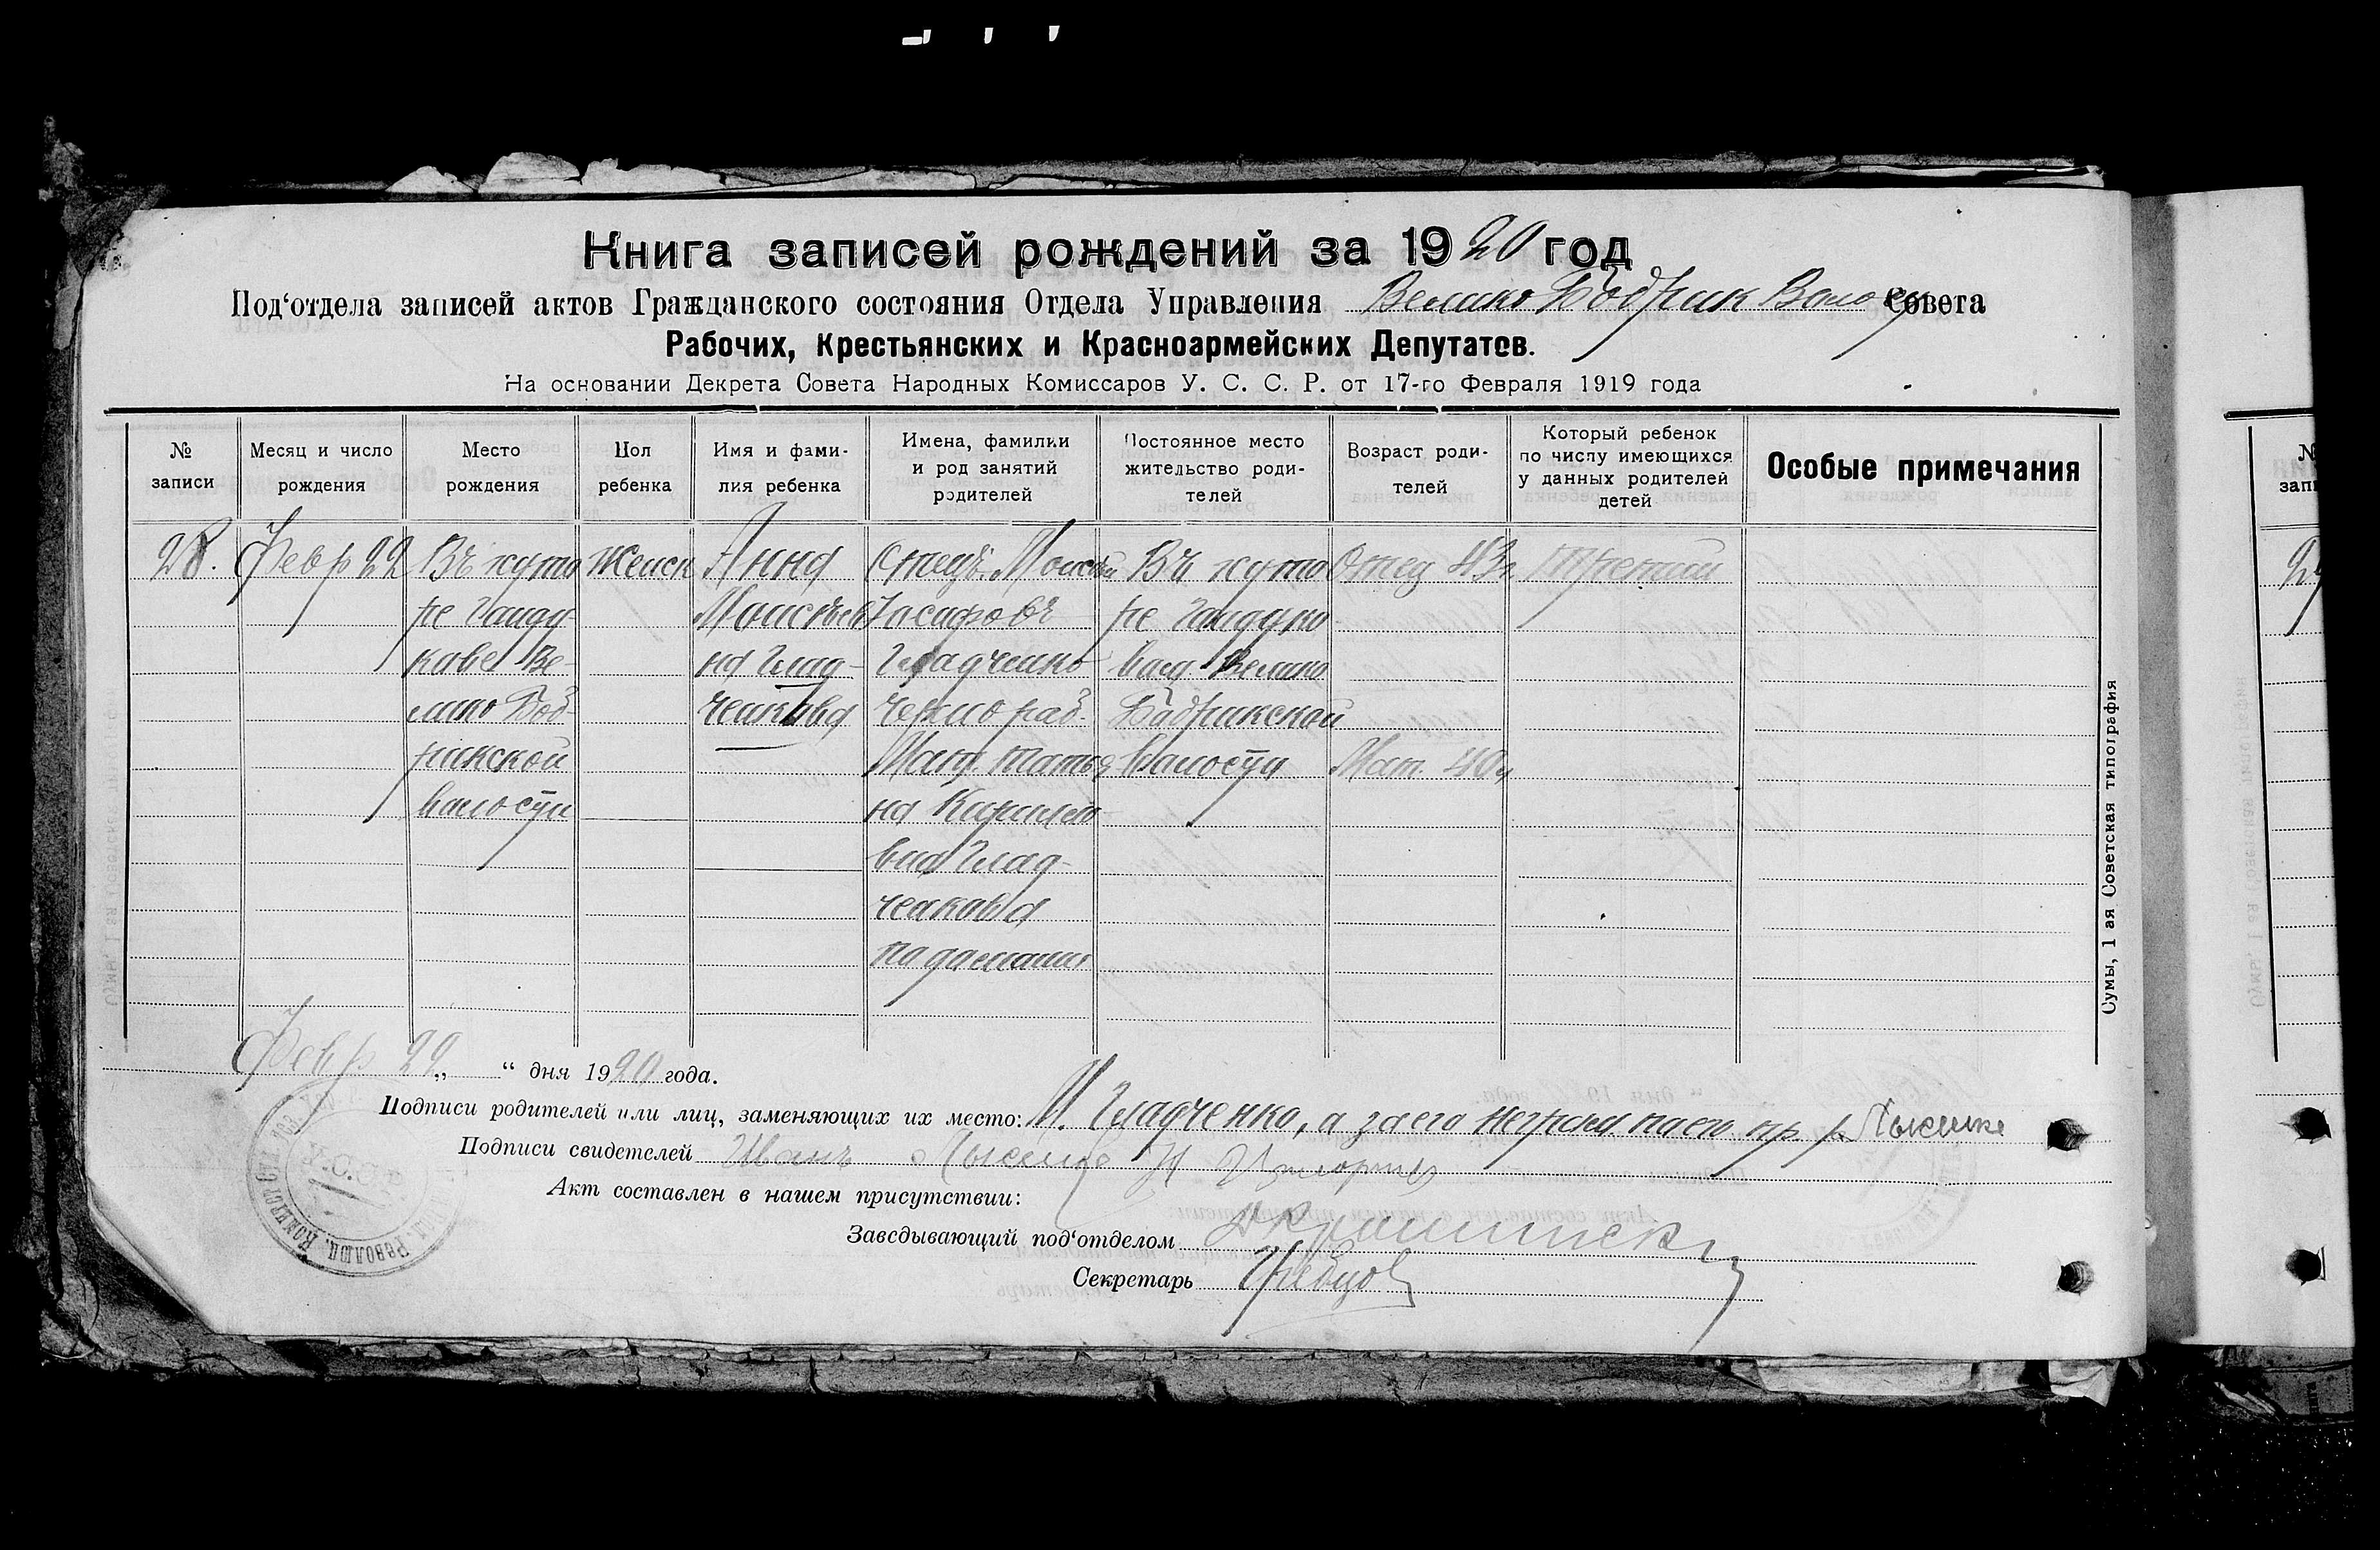 Книга записей рождений за 1920 год
Под‘отдела записей актов Гражданского состояния Отдела Управления Велико Бобрик Волосу Совета
Рабочих, Крестьянских и Красноармейских Депутатов.
На основании Декрета Совета Народных Комиссаров У. С. С. Р. от 17-го Февраля 1919 года
№ записи
Месяц и число рождения
Место рождения
Пол ребенка
Имя и фами-
лия ребенка
Имена, фамилии
и род занятий
родителей
Постоянное место
жительство роди-
телей
Возраст роди-
телей
Который ребенок
по числу имеющихся
у данных родителей
детей
Особые примечания
28.
Февр 22
Въ хуто
ре
Ве-
лико Боб-
рикской
волости
Женск
Анна
Моисеев
на Глад-
ченкова
Отецъ Моисей
Иосафовъ
Гладченко
чернораб.
Мать Татья
на Кирилло
вна Глад-
ченкова
Въ хуто
ре
Велико
Бобрикской
Волости
Отец 43 г
Мат. 40 г
Третий
Сумы, 1 ая Советская типография
Февр 22 „ “ дня 1920 года.
Подписи родителей или лиц, заменяющих их место: М. Гладченко, а за его негр
Подписи свидетелей Иванъ
Акт составлен в нашем присутствии:
Заведывающий под‘отделом
Секретарь
№
запи
29